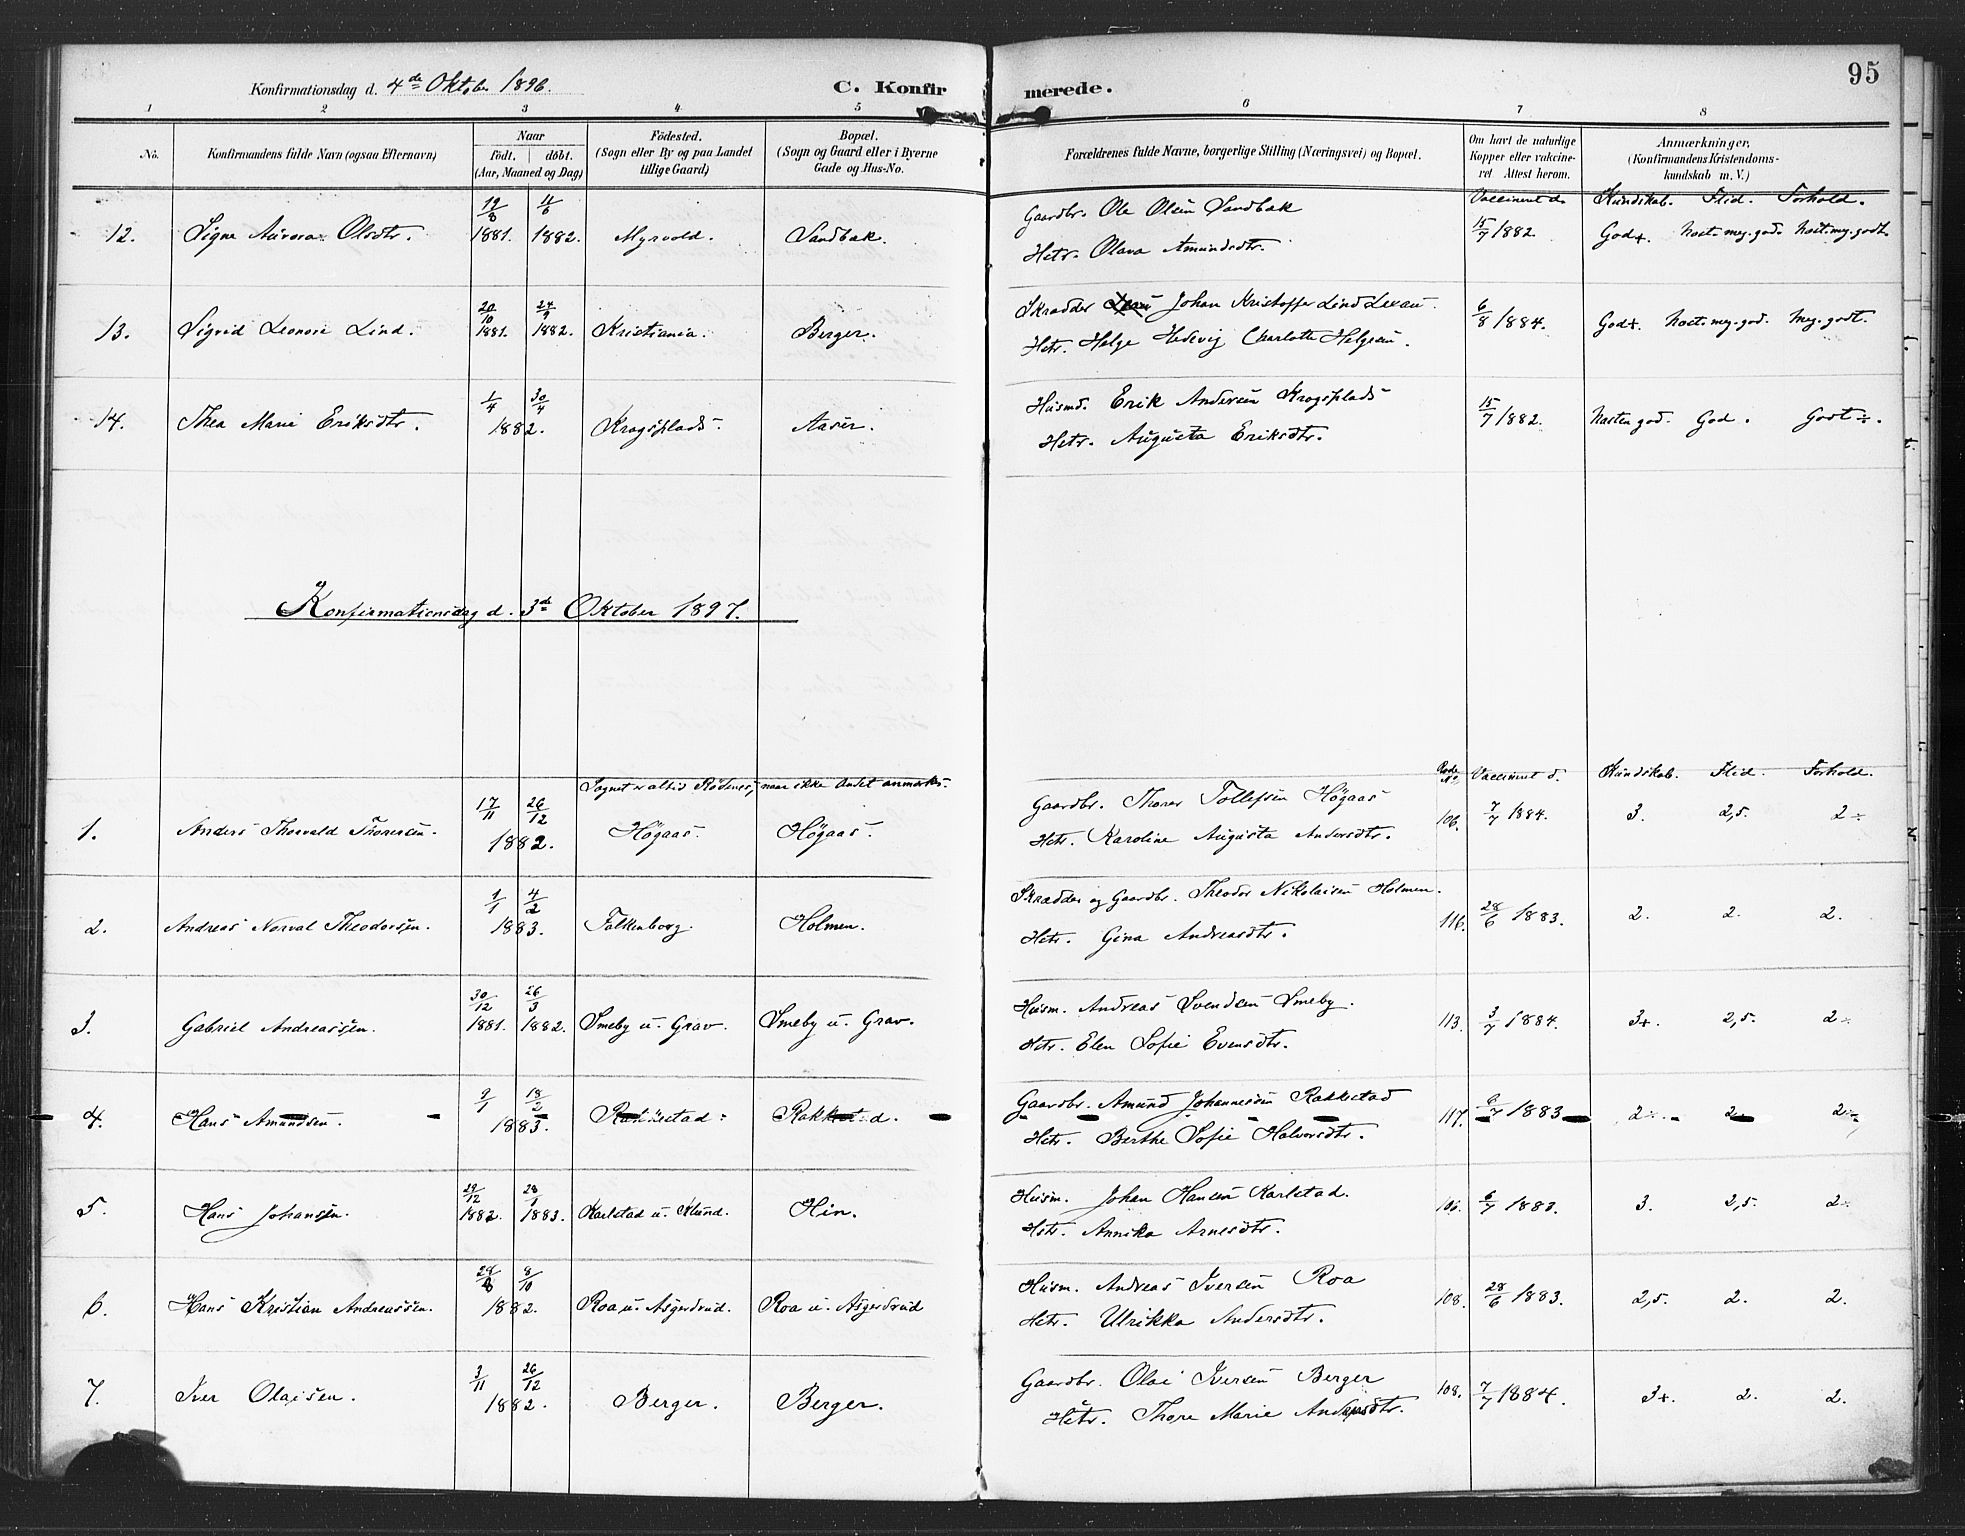 95
Konfirmationsdag d. 4de Oktober 1896.
C. Konfirmerede.
1 2 3 4 5 6 7 8
No. Konfirmandens fulde Navn (ogsaa Efternavn) Naar født. døbt. (Aar, Maaned og Dag) Fødested. (Sogn eller By og paa Landet tillige Gaard) Bopæl. (Sogn og Gaard eller i Byerne Gade og Hus-No. Forældrenes fulde Navne, borgerlige Stilling (Næringsvei) og Bopæl. Om havt de naturlige Kopper eller vakcineret. Attest herom. Anmærkninger, (Konfirmandens Kristendomskundskab m. V.)
Vaccineret d. Kundskab. Flid. Forhold.
12. Signe Aurora Olsdtr. 19/8 1881. 4/6 1882. Myrvold. Sandbæk. Gaardbr. Ole Olsen Sandbæk
Hstr. Olava Amundsdtr. 15/7 1882. God+. Næst. meg. god. Næst. meg. godt.
13. Sigrid Leonore Lind. 20/10 1881. 24/9 1882. Kristiania. Berger. Skrædder Johan Kristoffer Lind
Hstr. Helge Hedevig Charlotte Helgesen. 6/8 1884. God+. Næst. meg. god. Meg. godt.
14. Thea Marie Eriksdtr. 1/4 30/4 1882. Krogsplads. Aaser. Husmd. Erik Andersen Krogsplads
Hstr. Augusta Eriksdtr. 15/7 1882. Næsten god. God. Godt÷.
Konfirmationsdag d. 3de Oktober 1897.
Sognet er altid Rødenes, naar ikke andet anmærkes.
Rode No. Vaccineret d. Kundskab. Flid. Forhold.
1. Anders Thorvald Thoresen. 17/11 26/12 1882. Høgaas. Høgaas. Gaardbr. Thorer Tollefsen Høgaas
Hstr. Karoline Augusta Andersdtr. 106. 7/7 1884. 3. 2,5. 2÷
2. Andreas Norval Theodorsen. 1/1 4/2 1883. Falkenborg. Holmen. Skrædder og Gaardbr. Theodor Nikolaisen Holmen.
Hstr. Gina Andreasdtr. 116. 28/6 1883. 2. 2. 2.
3. Gabriel Andreassen. 30/12 1881. 26/3 1882. Smeby u. Grav. Smeby u. Grav. Husm. Andreas Svendsen Smeby.
Hstr. Elen Sofie Evensdtr. 113. 3/7 1884. 3+. 2,5. 2÷
4. Hans Amundsen. 9/1 18/2 1883. Rakkestad. Rakkestad. Gaardbr. Amund Johannesen Rakkestad
Hstr. Berthe Sofie Halvorsdtr. 117. 1883 2÷. 2 2÷
5. Hans Johansen. 29/12 1882. 28/1 1883. Karlstad u. Klund. Hin. Husm. Johan Hansen Karlstad.
Hstr. Annika Arnesdtr. 106. 6/7 1883. 3. 2,5. 2÷
6. Hans Kristian Andreassen. 28/8 8/10 1882. Roa u. Asgerdrud. Roa u. Asgerdrud Husm. Andreas Iversen Roa
Hstr. Ulrikka Andersdtr. 108. 28/6 1883. 2,5. 2. 2.
7. Iver Olaisen. 3/11 26/12 1882. Berger. Berger. Gaardbr. Olai Iversen Berger
Hstr. Thore Marie Andersdtr. 108. 7/7 1884. 3+. 2. 2.